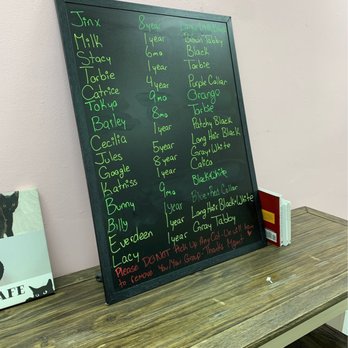 Jinx 8 year
Milk 1 year Tabby
Stacy 6mo Black
Torbie 1 year Torbie
Catrice 4 year Purple Collar
Tokyo 9mo Orange
Bailey 8mo Torbie
Cecilia 1 year Patchy Black
Jules 5 year Long Hair Black
Google 8 year Gray White
Katriss 1 year Calico
Bunny 9mo Black White
Billy 1 year Blue Collar
Everdeen 1 year Long Hair Black White
Lacy 1 year Gray Tabby
Please DO NOT Pick Up Any Cat. We will
to remove You/Your Group. Thanks Mgmt
AFE